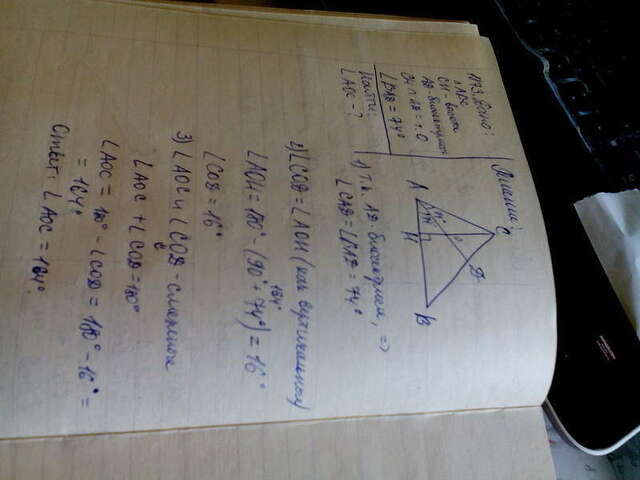 №3. Дано:
△ABC
CH - высота
AD - биссектриса
CH ∩ AD = т. O
∠BAD = 74°
Найти:
∠AOC - ?
Решение:
C
A
74°
74°
O
D
H
B
1) Т.к. AD - биссектриса, =>
∠CAD = ∠BAD = 74°
2) ∠COD = ∠AOH (как вертикальные)
∠AOH = 180° - (90° + 74°) = 16°
164°
∠COD = 16°
3) ∠AOC и ∠COD - смежные
∠AOC + ∠COD = 180°
∠AOC = 180° - ∠COD = 180° - 16° =
= 164°
Ответ: ∠AOC = 164°